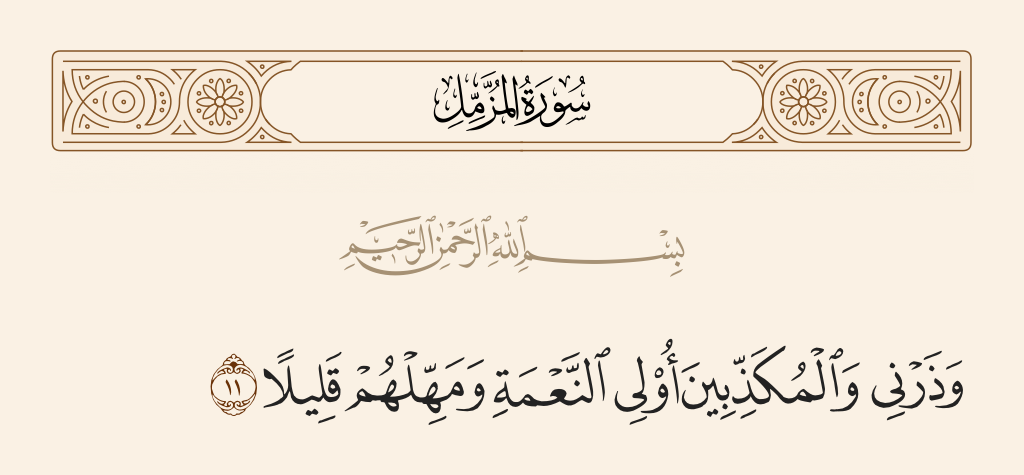 سُورَةُ المُزَّمِّلِ
بِسْمِ ٱللَّهِ ٱلرَّحْمَٰنِ ٱلرَّحِيمِ
وَذَرْنِى وَٱلْمُكَذِّبِينَ أُو۟لِى ٱلنَّعْمَةِ وَمَهِّلْهُمْ قَلِيلًا ١١